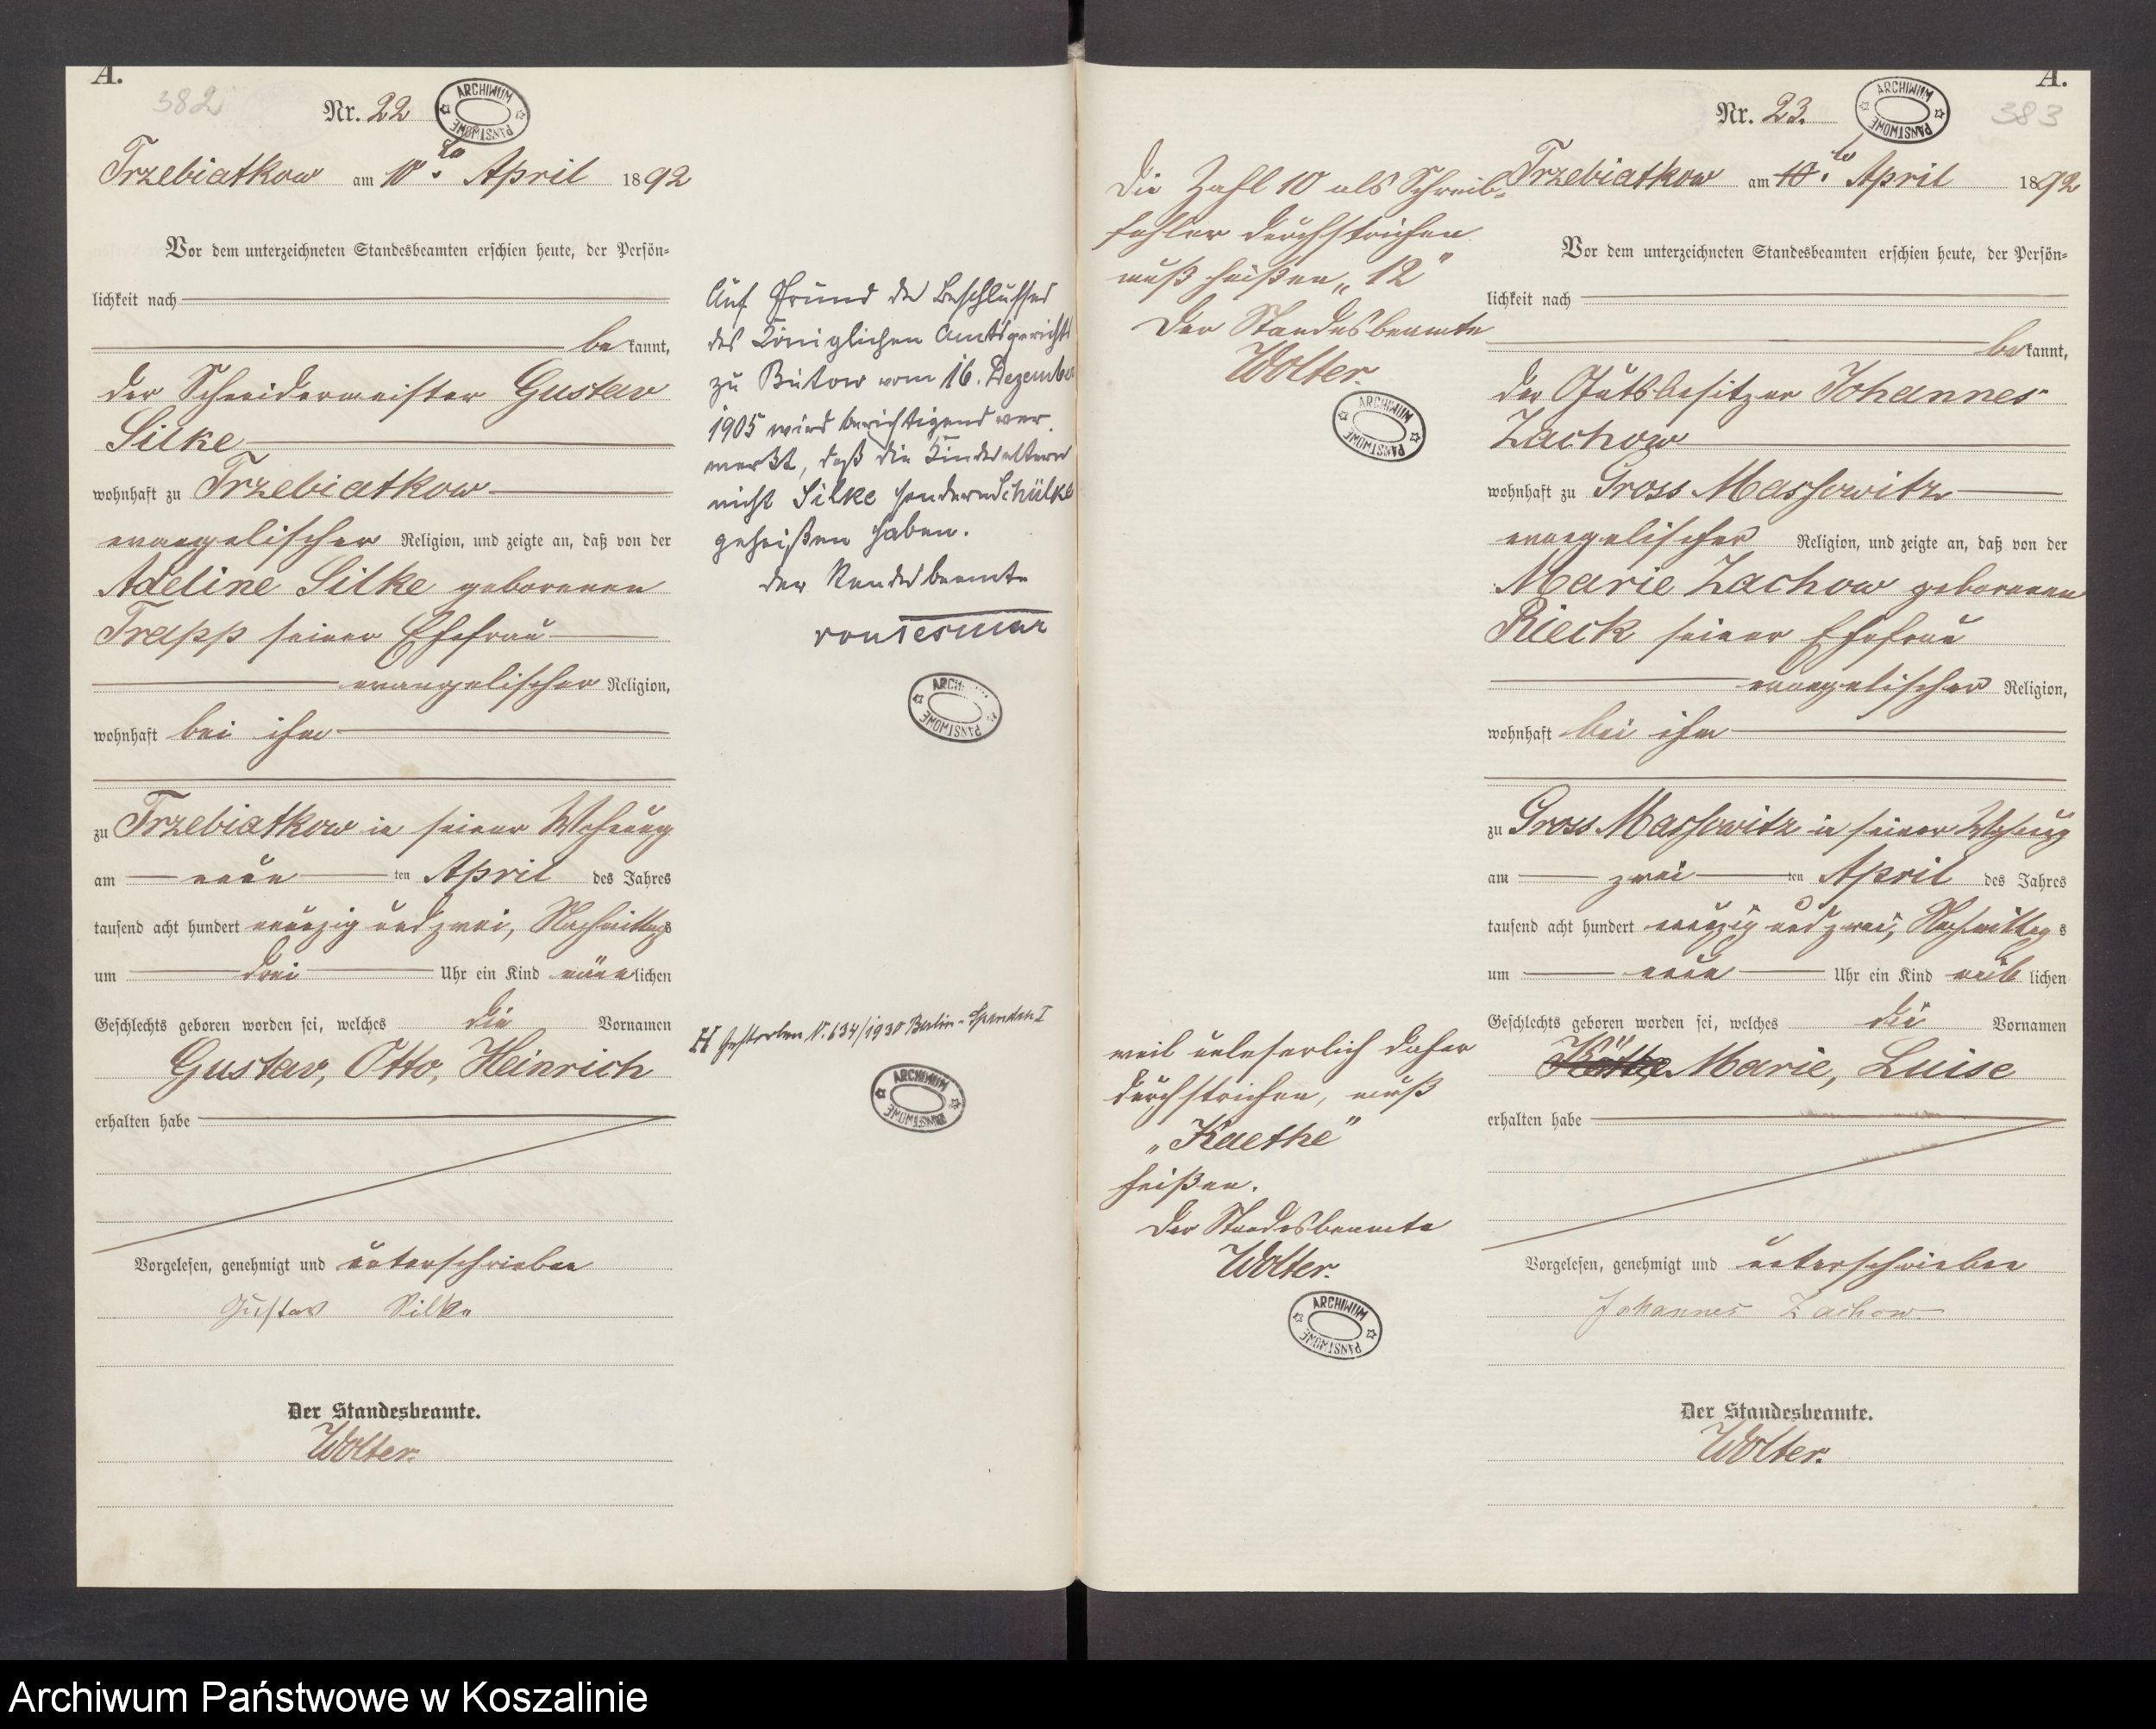 A.
382
Nr. 22
ARCHIWUM PAŃSTWOWE
Trzebiatkow am 10ten April 1892
Vor dem unterzeichneten Standesbeamten erschien heute, der Persön-
lichkeit nach
be kannt,
der Schneidermeister Gustav
Silke
wohnhaft zu Trzebiatkow
evangelischer Religion, und zeigte an, daß von der
Adeline Silke geborenen
Trapp seiner Ehefrau
evangelischer Religion,
wohnhaft bei ihm
zu Trzebiatkow in seiner Wohnung
am neun ten April des Jahres
tausend acht hundert neunzig und zwei, Nachmittags
um drei Uhr ein Kind männlichen
Geschlechts geboren worden sei, welches die Vornamen
Gustav, Otto, Heinrich
erhalten habe
Vorgelesen, genehmigt und unterschrieben
Gustav Silke
Der Standesbeamte.
Wolter.
Auf Grund des Beschlusses
des Königlichen Amtsgerichts
zu Bütow vom 16. Dezember
1905 wird berichtigend ver-
merkt, daß die Kindeseltern
nicht Silke sondern Schülke
geheißen haben.
der Standesbeamte
ARCHIWUM PAŃSTWOWE
H Gestorben N. 634/1930 Berlin-Spandau I
ARCHIWUM PAŃSTWOWE
A.
Nr. 23.
ARCHIWUM PAŃSTWOWE
383
Die Zahl 10 als Schreib-
fehler durchstrichen
muß heißen „12"
Der Standesbeamte
Wolter.
ARCHIWUM PAŃSTWOWE
Trzebiatkow am 10.ten April 1892
Vor dem unterzeichneten Standesbeamten erschien heute, der Persön-
lichkeit nach
be kannt,
der Gutsbesitzer Johannes
Zachow
wohnhaft zu Gross Massowitz
evangelischer Religion, und zeigte an, daß von der
Marie Zachow geborenen
Rieck seiner Ehefrau
evangelischer Religion,
wohnhaft bei ihm
zu Gross Massowitz in seiner Wohnung
am zwei ten April des Jahres
tausend acht hundert neunzig und zwei, Nachmittags
um neun Uhr ein Kind weiblichen
Geschlechts geboren worden sei, welches die Vornamen
Käthe, Marie, Luise
erhalten habe
weil unleserlich daher
durchstrichen, muß
„Kaethe"
heißen.
Der Standesbeamte
Wolter.
ARCHIWUM PAŃSTWOWE
Vorgelesen, genehmigt und unterschrieben
Johannes Zachow.
Der Standesbeamte.
Wolter.
Archiwum Państwowe w Koszalinie